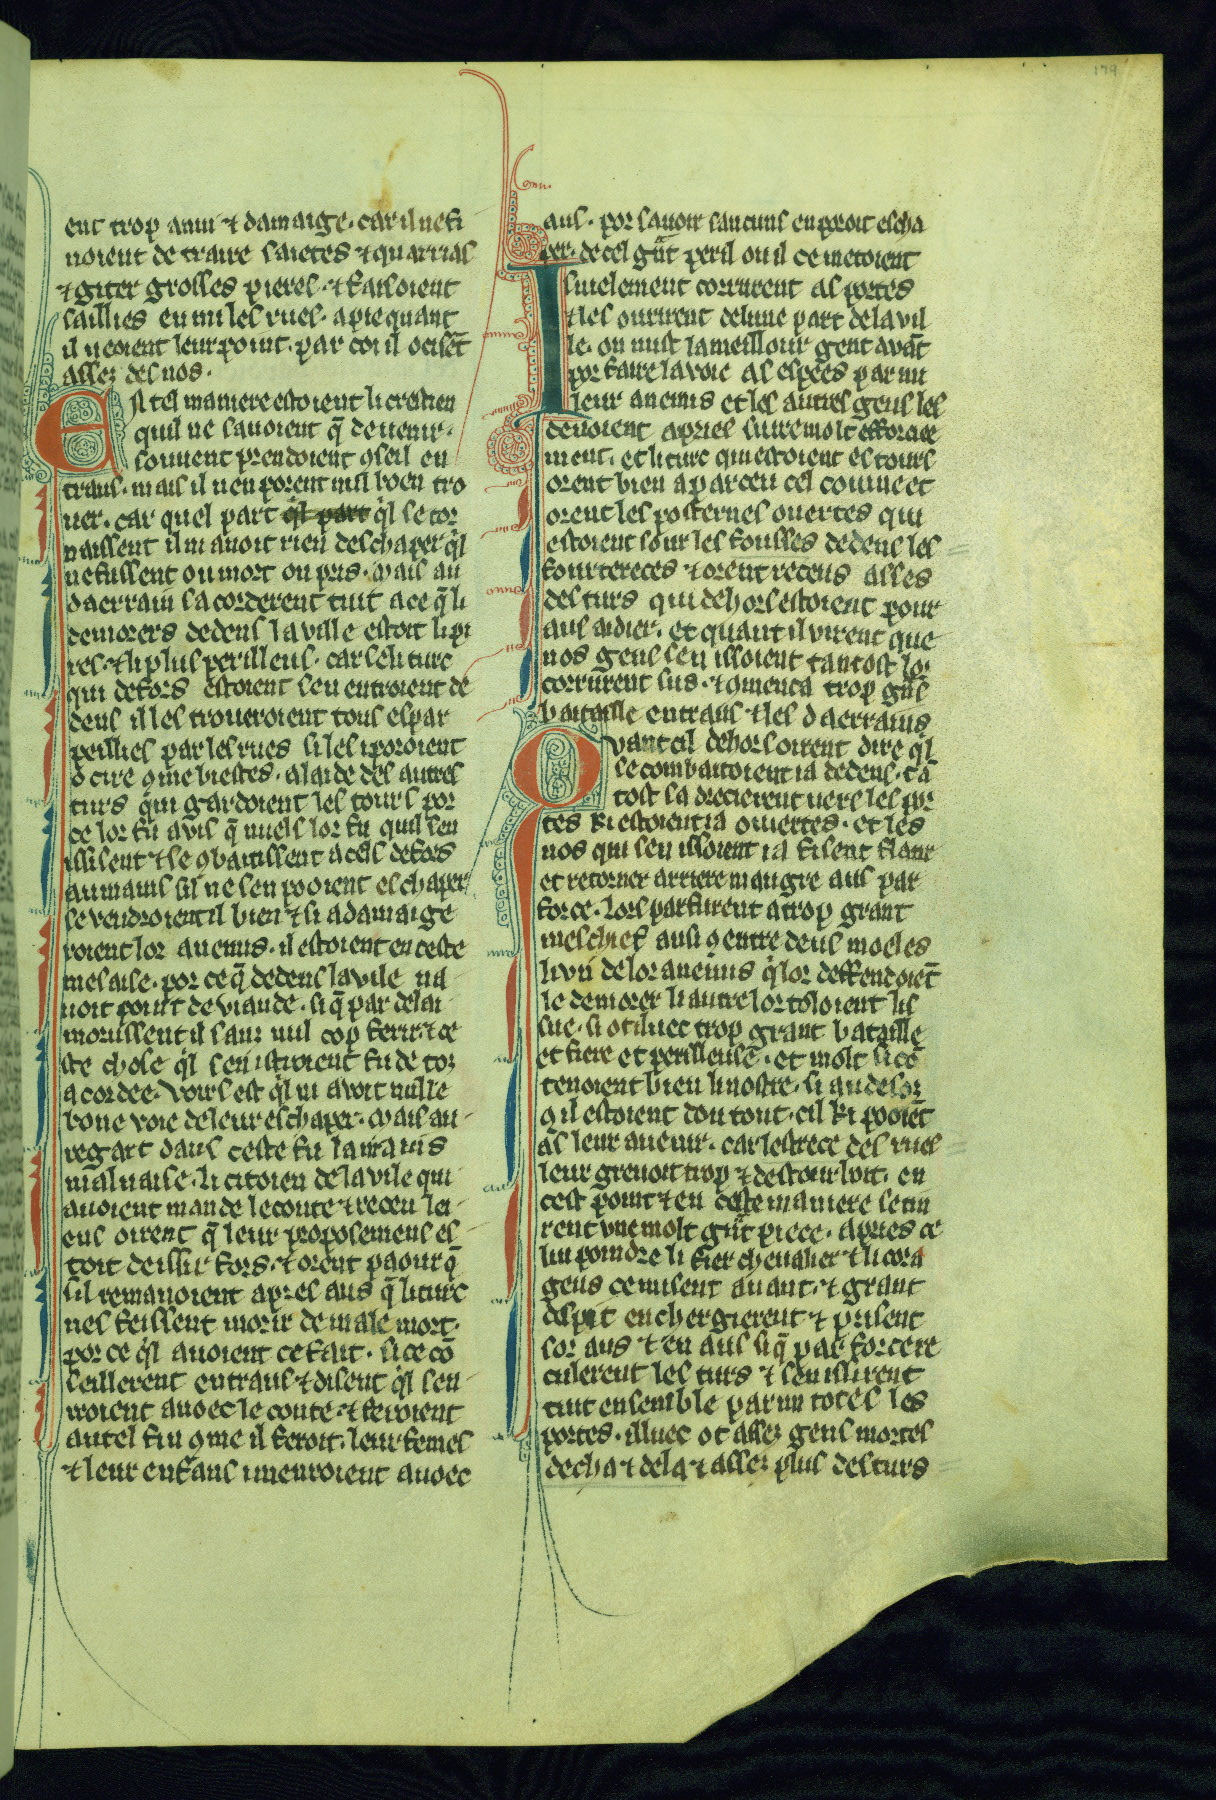 179
ent trop anui ⁊ damaige. car il ne fi
noient de traire saietes ⁊ quarriax
⁊ giter grosses pieres. ⁊ faisoient
saillies en mi les rues. a pie quant
il ueoient leur point. par coi il ocisēt
assez des nos.
En tel maniere estoient li crestien
quil ne sauoient q̄ deuenir.
souuent prendoient ꝯseil en
traus. mais il nen porent nul boen tro
uer. car quel part q̓l part q̓l se tor
naissent il ni auoit rien deschaper q̓l
ne fussent ou mort ou pris. Mais au
daerrain sacorderent tuit a ce q̄ li
demorers dedens la ville estoit li pi
res. ⁊ li plus perilleus. car se li turc
qui defors estoient sen entroient de
dens il les troueroient tous espar
peilliés par les rues si les iporoient
ocire ꝯme biestes. a laide des autres
turs qui gardoient les tours por
ce lor fu auis q̄ miels lor fu quil sen
issisent ⁊ se ꝯbatissent a cels defors
au mains sil ne sen pooient eschaper
se vendroientil bien ⁊ si adamaige
roient lor anemis. il estoient en ceste
mesaise. por ce q̄ dedens la vile na
uoit point de viande. si q̄ par delai
morussent il sanz nul cop ferir. ⁊ ce
ste chose q̓l sen istroient fu de toz
acordee. Voirs est q̓l ni auoit nulle
bone voie de leur eschaper. Mais au
regart daus ceste fu la mains
maluaise. li citoien de la vile qui
auoient mande le conte ⁊ receu lei
ens oirent q̄ leur proposemens es
toit deissir fors. ⁊ orent paour q̄
sil remanoient apres aus q̄ li turc
nes feissent morir de male mort.
por ce q̓l auoient ce fait. si ce cō
seillerent entraus ⁊ disent q̓l sen
iroient auoec le conte. ⁊ feroient
autel fin ꝯme il feroit. leur femes
⁊ leur enfans i menroient auoec
aus. por sauoir saucuns en poroit escha
per. de cel gͣnt peril ou il ce metoient
Isnelement corrurent as portes
⁊ les ouurirent de lune part de la vil
le. on mist la meillour gent auāt
por faire la voie as espees par mi
leur anemis et les autres gens les
deuoient apries siure molt efforciee
ment. et li turc qui estoient es tours
orent bien aparceu cel couine et
orent les posternes ouertes qui
estoient sour les fousses dedens les
fourtereces ⁊ orent receus asses
des turs qui dehors estoient pour
aus aidier. et quant il virent que
nos gens sen issoient tantost lor
corrurent sus. ⁊ ꝯmenca trop gͣns
bataille entraus ⁊ les daerrains
Quant cil dehors oirent dire q̓l
se combatoient ia dedens. tā
tost sa drecierent uers les por
tes ki estoient ia ouuertes. et les
nos qui sen issoient ia fisent flatir
et retorner arriere maugre aus par
force. lors par furent a trop grant
meschief ausi ꝯ entre deus moeles
li vn de lor anemis q̓ lor deffendoiēt
le demorer li autre lor toloient lis
sue. si ot iluec trop grant bataille
et fiere et perilleuse. et molt si ce
tenoient bien li nostre. si au desoz
ꝯ il estoient dou tout. cil ki pooiēt
as leur auenir. car lestrece des rues
leur greuoit trop ⁊ destourboit. en
cest point ⁊ en ceste maniere se tin
rent vne molt gͣnt piece. apries ce
lui poindre li fier cheualier ⁊ li cora
geus ce misent auant. ⁊ grant
despit enchergierent ⁊ prisent
sor aus ⁊ en aus si q̄ par force re
culerent les turs ⁊ sen issirent
tuit ensemble parmi totes les
portes. illuec ot assez gens mortes
decha ⁊ dela ⁊ assez plus des turs